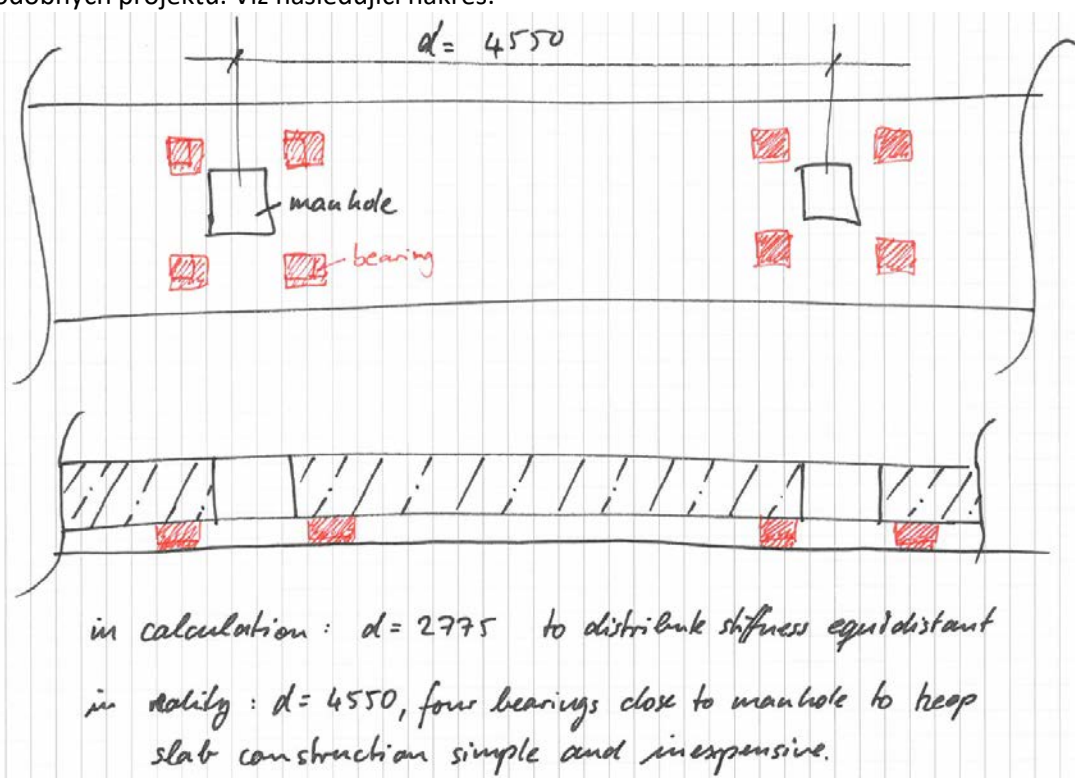 odobných projektů. Viz následující nákres:
d = 4550
manhole
bearing
in calculation : d = 2775 to distribute stiffness equidistant
in reality : d = 4550, four bearings close to manhole to keep
slab construction simple and inexpensive.